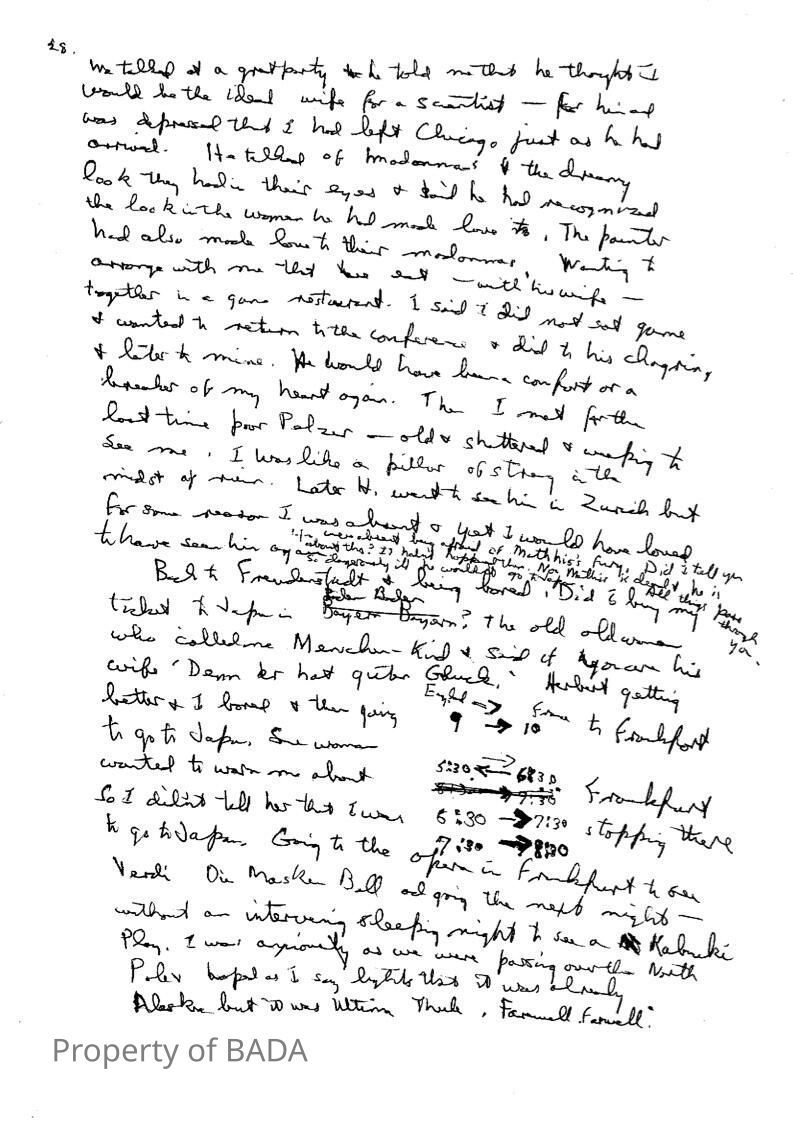 28.
We talked at a great party he told me that he thought I
would be the ideal wife for a scientist — for him and
was depressed that I had left Chicago just as he had
arrived. He talked of madonnas & the dreamy
look they had in their eyes & said he had recognized
the look in the women he had made love to. The painter
had also made love to their madonnas. Wanting to
arrange with me that we eat — with his wife —
together in a game restaurant. I said I did not eat game
& wanted to return to the conference & did to his chagrin,
& later to mine. He would have been a comfort or a
breaker of my heart again. Then I met for the
last time poor Polzer — old & shattered & weeping to
see me. I was like a pillar of in the
midst of ruin. Later H. went to see him in Zurich but
for some reason I was absent & yet I would have loved
to have seen him again
I was absent being afraid of Mathis's fury. Did I tell you
about this? It hadn't happened then. Now Mathis is dead & he is
so dangerously ill he would go to Japan. All things pass
through
you.
Back to Freudenstadt & being bored. Did I buy my
ticket to Japan in Baden Baden
Bayern Bayern? The old old woman
who called me Menschen-Kind & said if you are his
wife 'Denn er hat guten Gluck.' Herbert getting
better & I bored & then going
England → From to Frankfort
9 → 10
to go to Japan. Some woman
wanted to warn me about
5:30 ← 6:30 Frankfurt
→ 7:30
so I didn't tell her that I was
6:30 → 7:30 stopping there
to go to Japan. Going to the
7:30 → 8:30
opera in Frankfurt to see
Verdi Die Masken Ball and going the next night —
without an intervening sleeping night to see a Kabuki
Play. I was anxiously as we were passing over the North
Pole hoped as I say lights that it was already
Alaska but it was Ultima Thule. Farewell. Farewell.
Property of BADA